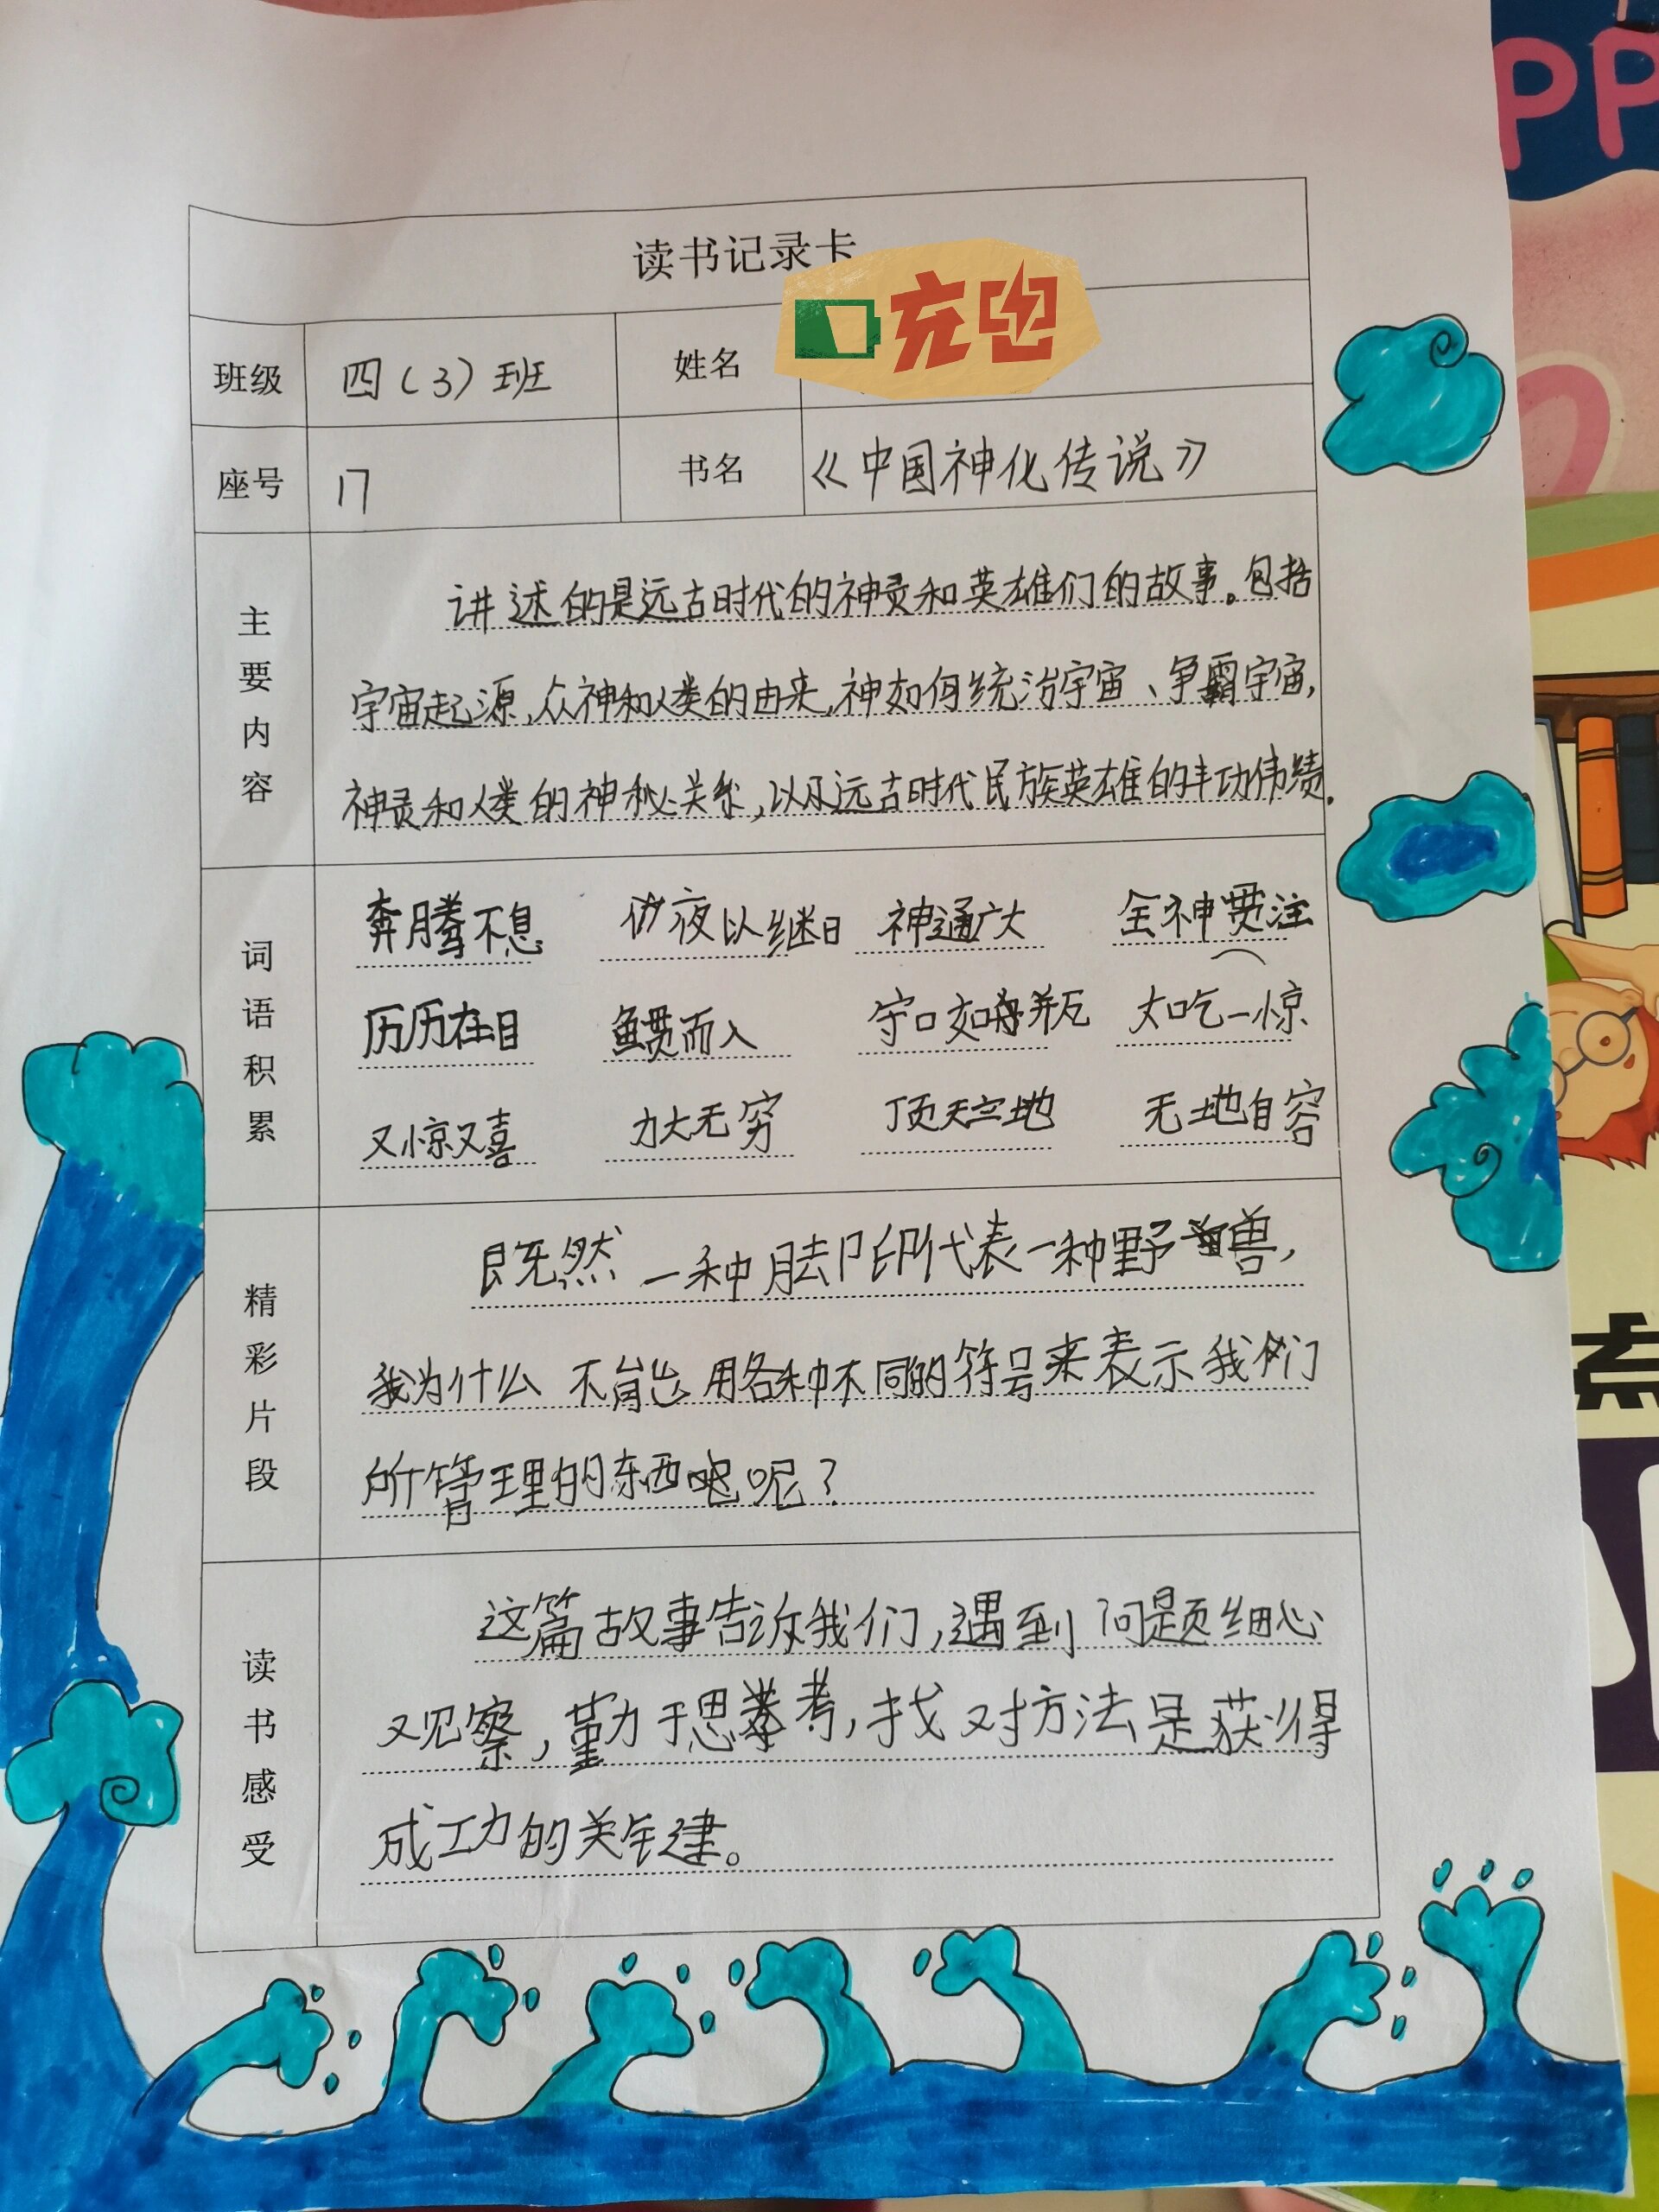 PP
读书记录卡
充电
班级 四（3）班 姓名
座号 17 书名 《中国神化传说》
主要内容
讲述的是远古时代的神灵和英雄们的故事。包括
宇宙起源,众神和人类的由来,神如何统治宇宙、争霸宇宙,
神灵和人类的神秘关系,以及远古时代民族英雄的丰功伟绩.
词语积累
奔腾不息 夜以继日 神通广大 全神贯注
历历在目 鱼贯而入 守口如瓶 大吃一惊
又惊又喜 力大无穷 顶天立地 无地自容
精彩片段
既然一种脚印代表一种野兽,
我为什么不能用各种不同的符号来表示我们
所管理的东西呢?
读书感受
这篇故事告诉我们,遇到问题细心
观察,勤于思考,找对方法是获得
成功的关键。